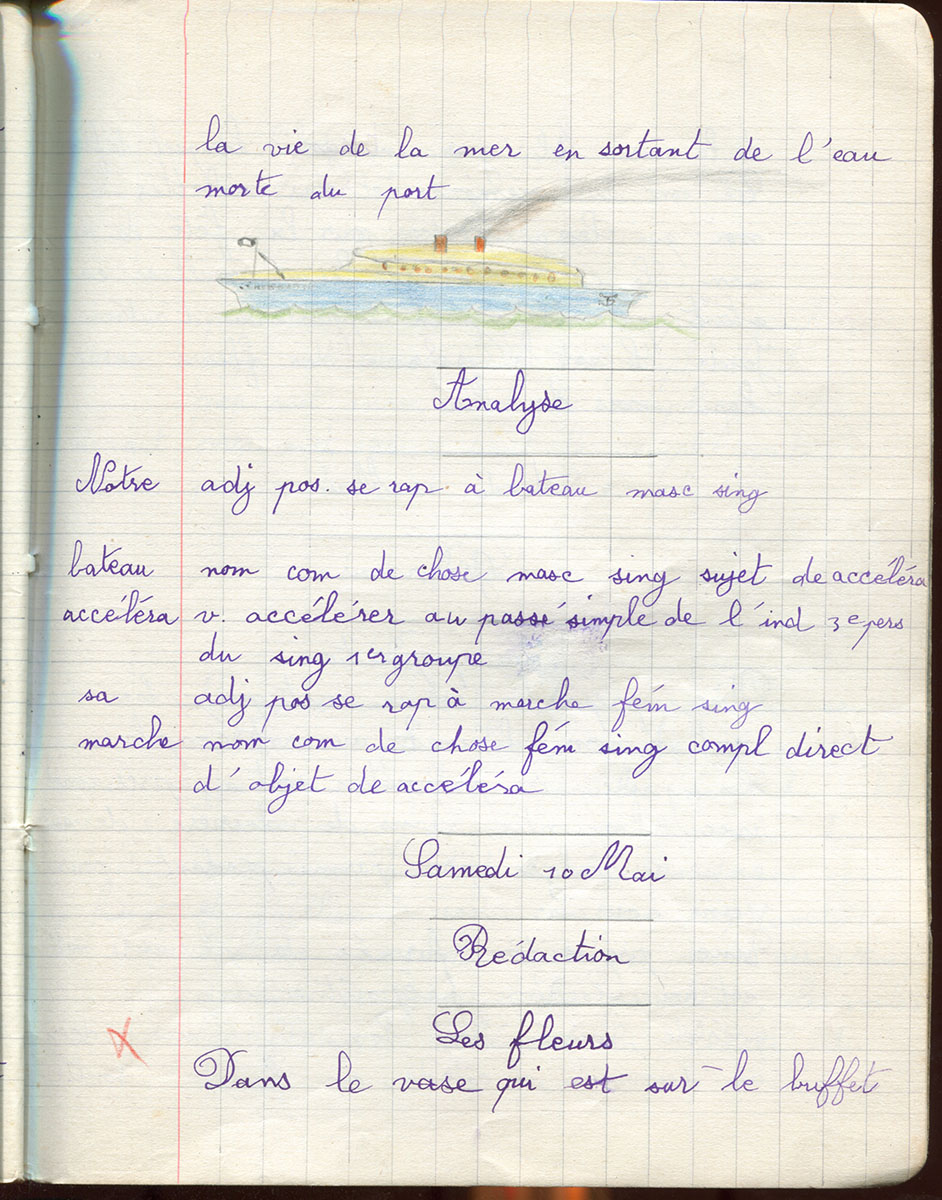 la vie de la mer en sortant de l'eau
morte du port
Analyse
Notre adj pos. se rap. à bateau masc sing
bateau nom com de chose masc sing sujet de accéléra
accéléra v. accélérer au passé simple de l'ind 3e pers
du sing 1er groupe
sa adj pos se rap à marche fém sing
marche nom com de chose fém sing compl direct
d'objet de accéléra
Samedi 10 Mai
Rédaction
Les fleurs
Dans le vase qui est sur le buffet